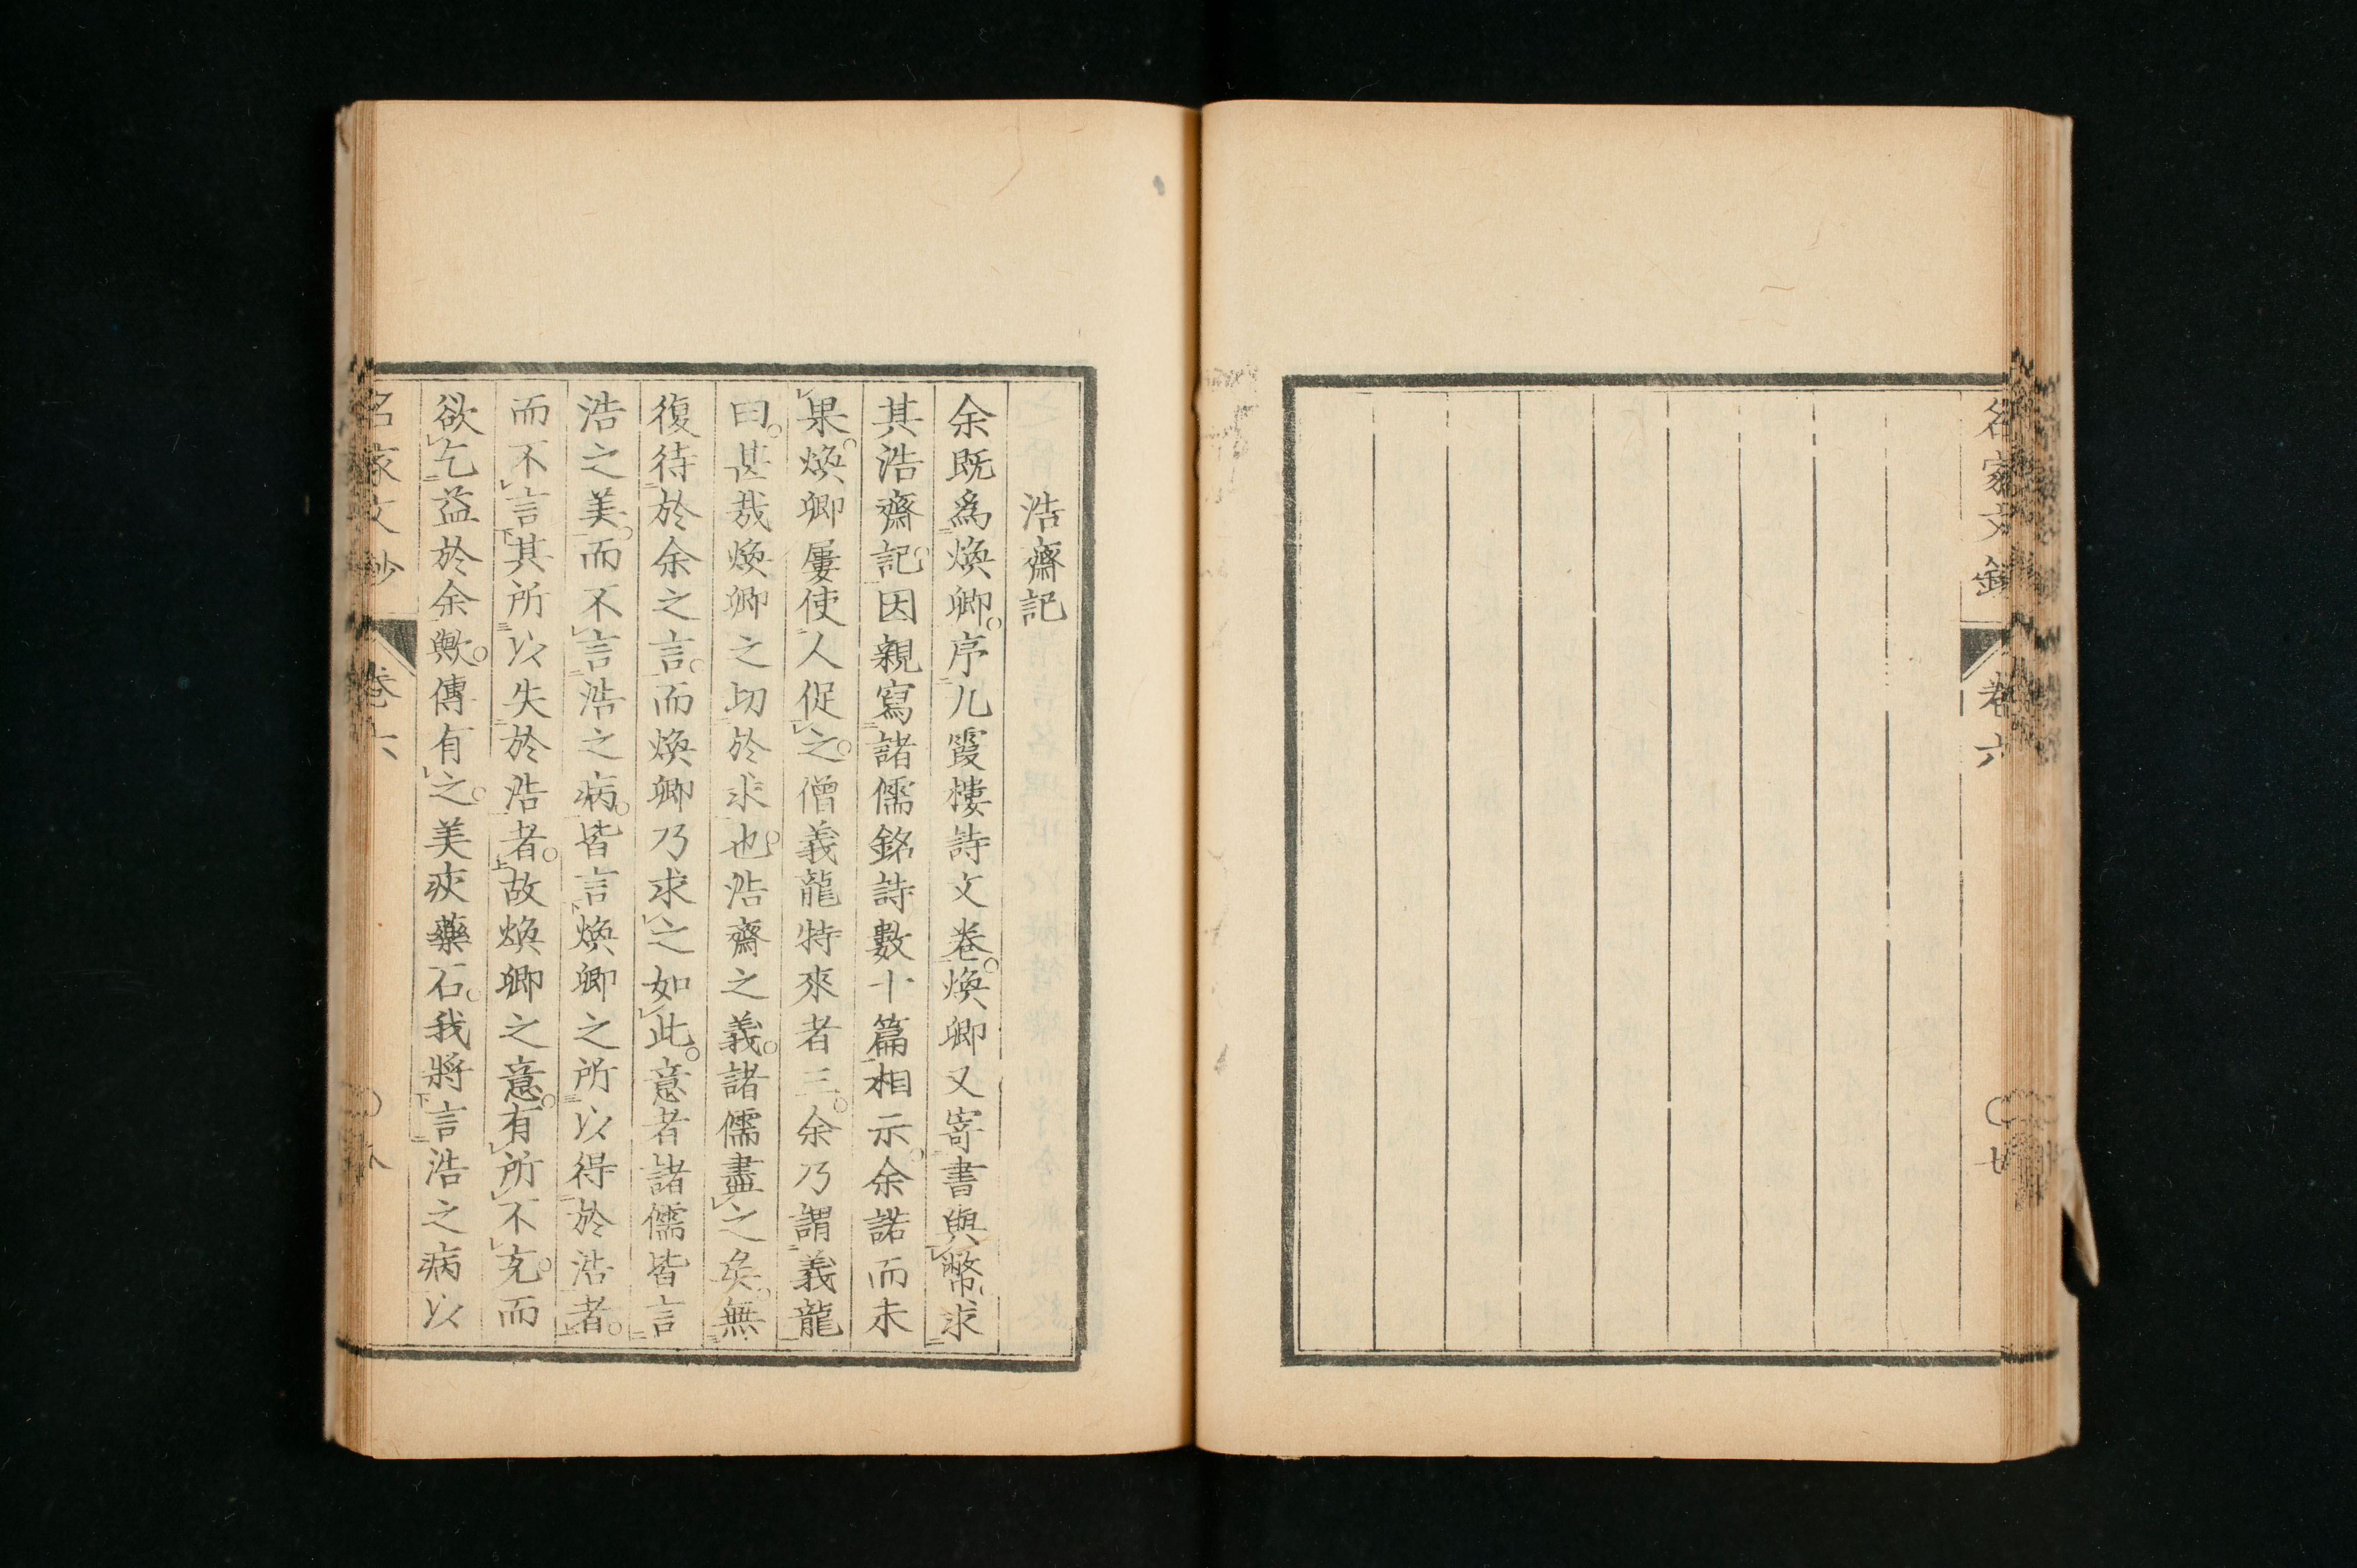 名家文鈔
卷六
浩齋記
余既爲煥卿序九霞樓詩文卷煥卿又寄書與幣求
其浩齋記因親寫諸儒銘詩數十篇相示余諾而未
果煥卿屢使人促之僧義龍特來者三余乃謂義龍
曰甚哉煥卿之切於求也浩齋之義諸儒盡之矣無
復待於余之言而煥卿乃求之如此意者諸儒皆言
浩之美而不言浩之病皆言煥卿之所以得於浩者
而不言其所以失於浩者故煥卿之意有所不充而
欲乞益於余歟傳有之美疢藥石我將言浩之病以
名家文鈔
卷六